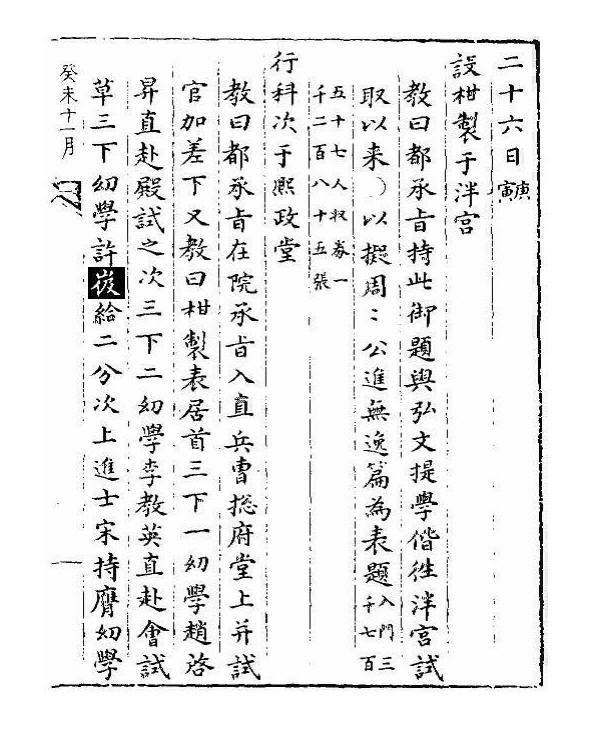 二十六日庚寅
設柑製于泮宮
教曰都承旨持此御題與弘文提學偕徃泮宮試
取以来〇以擬周〻公進無逸篇為表題入門三千七百
五十七人収券一千二百八十五張
行科次于熙政堂
教曰都承旨在院承旨入直兵曹摠府堂上并試
官加差下又教曰柑製表居首三下一幼學趙啓
昇直赴殿試之次三下二幼學李教英直赴會試
草三下幼學許𡹘給二分次上進士宋持膺幼學
癸未十一月